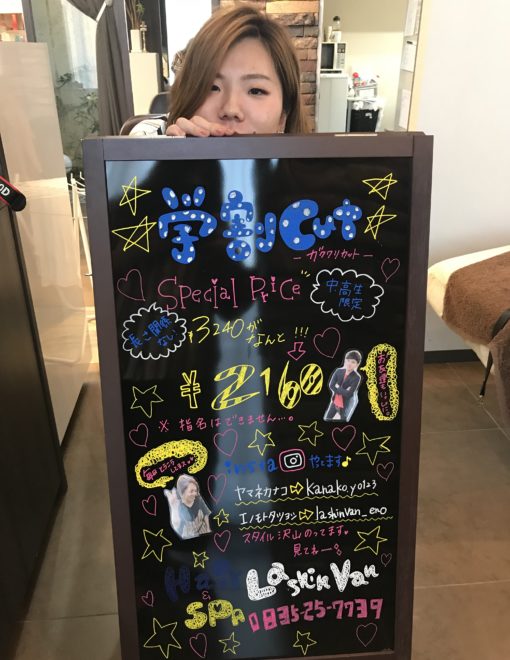 学割Cut
ーガクワリカットー
Special Price
中高生
限定
長さ関係
ない
¥3240が
なんと!!!
¥2160
お友達でいいし
※指名はできません…。
insta やってます♪
ヤマネカナコ⇨Kanako.yo123
エノモトタツヨシ⇨lashinvan_eno
スタイル沢山のってます。
見てねー
Hair
&
SPA
LashinVan
0835-25-7739